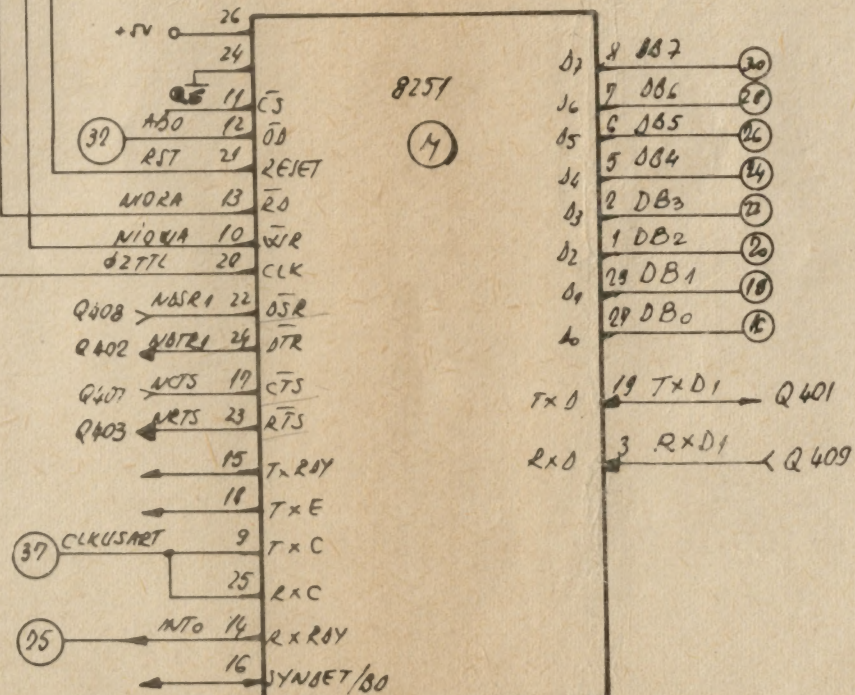 26
+5V
24
11 CS
8251
M
32 AB0 12 OD
RST 21 RESET
NIORA 13 RD
NIOWA 10 WR
ϕ2TTL 20 CLK
Q408 NDSR1 22 DSR
Q402 NDTR1 24 DTR
Q407 NCTS 17 CTS
Q403 NRTS 23 RTS
15 TxRDY
18 TxE
37 CLKUSART 9 TxC
25 RxC
INT0 14 RxRDY
16 SYNDET/BD
D7 8 DB7 30
D6 7 DB6 28
D5 6 DB5 26
D4 5 DB4 24
D3 2 DB3 22
D2 1 DB2 20
D1 DB1 18
D0 DB0
TxD 19 TxD1 Q401
RxD 3 RxD1 Q409